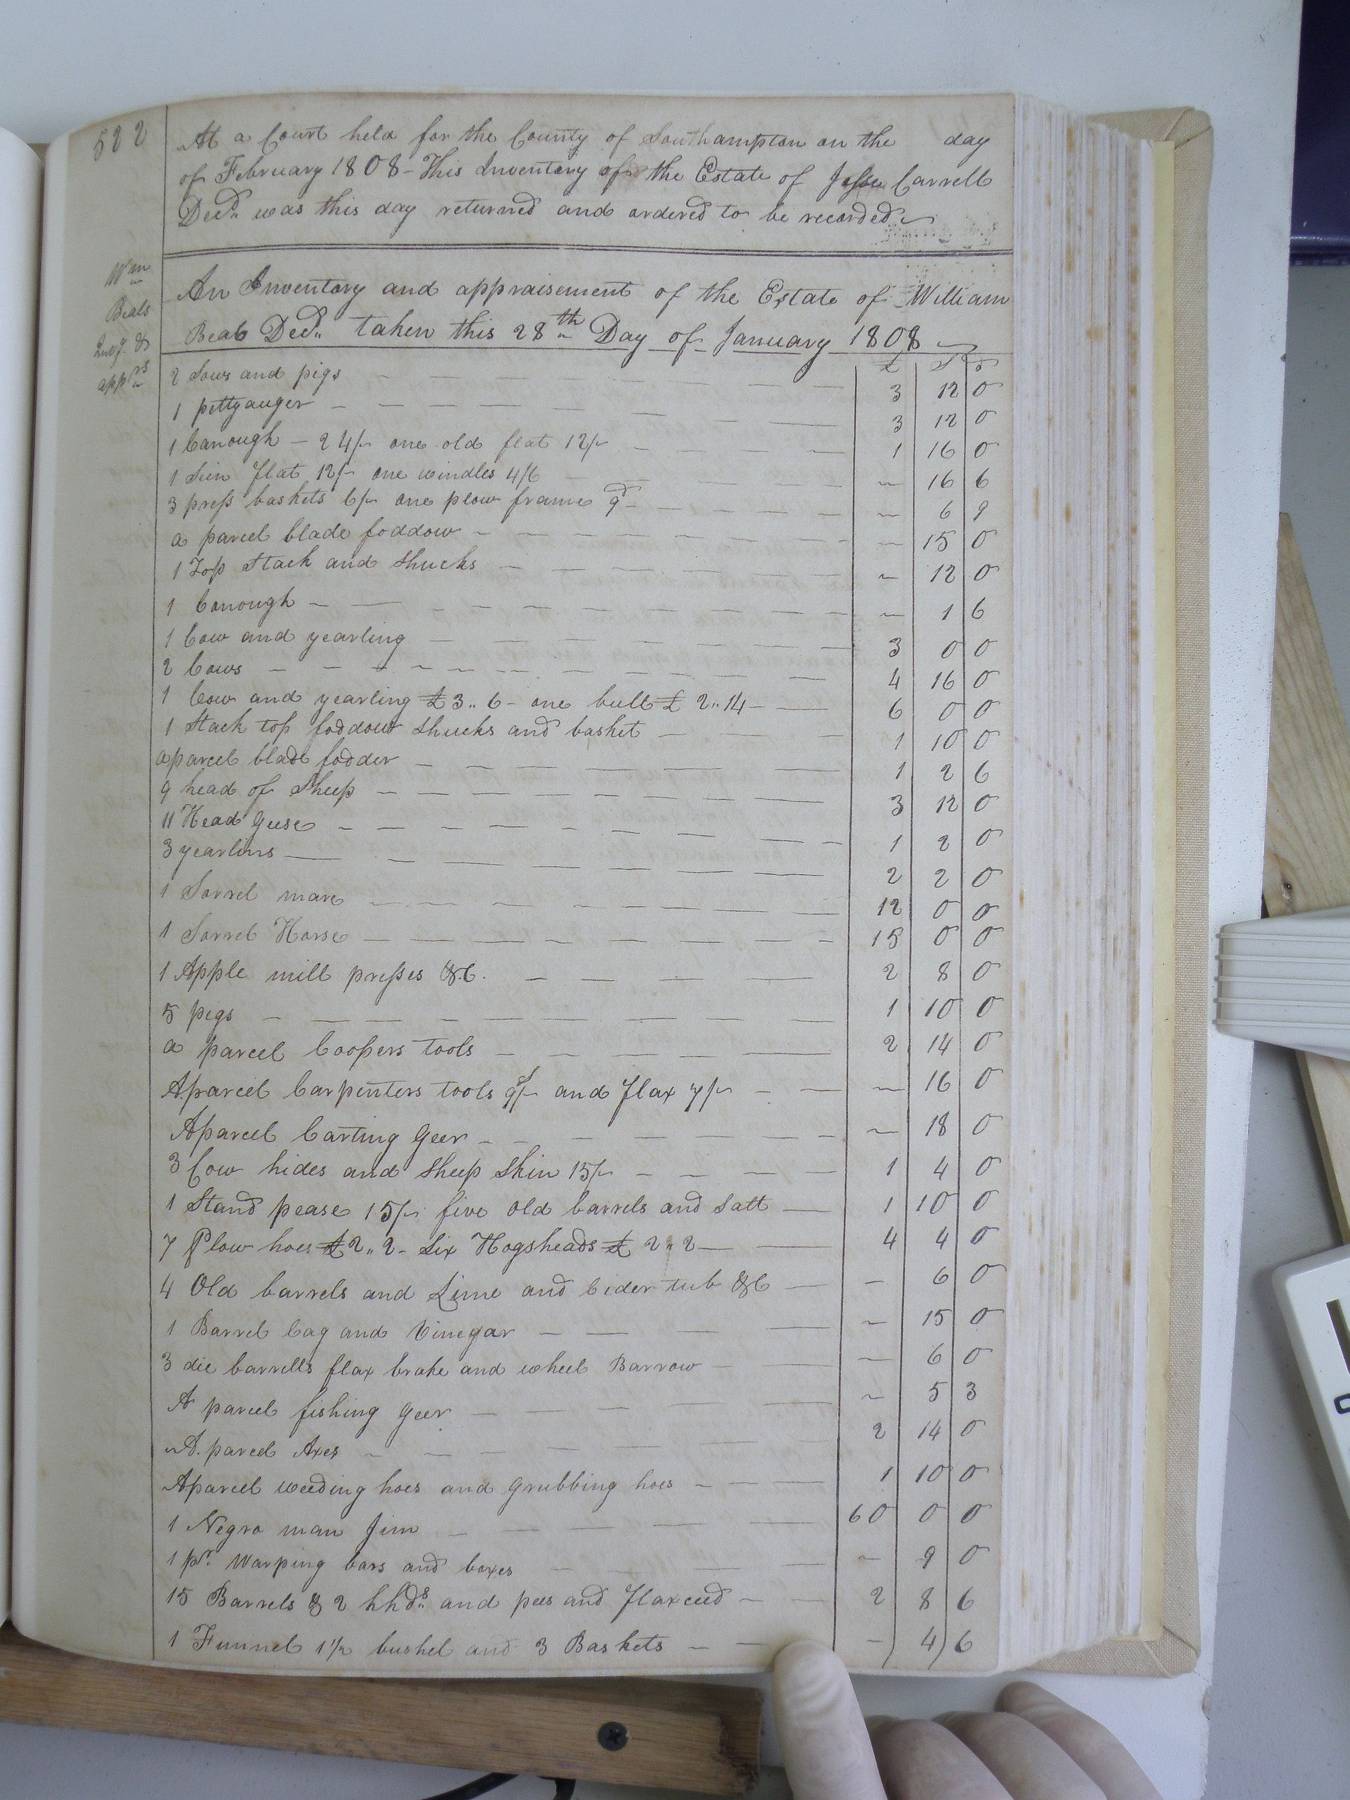 522
At a Court held for the County of Southampton on the day
of February 1808 - This Inventory of the Estate of Jesse Carrell
Decd. was this day returned and ordered to be recorded
Wm
Beals
Invy. &
appmt
An Inventory and appraisement of the Estate of William
Beal Decd. taken this 28th Day of January 1808
£ S D
2 Sows and pigs 3 12 0
1 pettyauger 3 12 0
1 Canough - 24/- one old flat 12/- 1 16 0
1 Sein flat 12/- one windles 4/6 - 16 6
3 press baskets 6/- one plow frame 9d - 6 9
a parcel blade foddow - 15 0
1 Top Stack and Shucks - 12 0
1 Canough - 1 6
1 Cow and yearling 3 0 0
2 Cows 4 16 0
1 Cow and yearling £3..6 - one bull £2..14 6 0 0
1 Stack top foddow shucks and basket 1 10 0
aparcel blade fodder 1 2 6
9 head of Sheep 3 12 0
11 Head Geese 1 2 0
3 yearlins 2 2 0
1 Sorrel mare 12 0 0
1 Sorrel Horse 15 0 0
1 Apple mill presses &C. 2 8 0
5 pigs 1 10 0
a parcel Coopers tools 2 14 0
Aparcel Carpenters tools 9/- and flax 7/- - 16 0
Aparcel Carting Geer - 18 0
3 Cow hides and Sheep Skin 15/- 1 4 0
1 Stand pease 15/- five old barrels and Salt 1 10 0
7 Plow hoes £2..2 - Six Hogsheads £2..2 4 4 0
4 Old barrels and Lime and Cider tub &C - 6 0
1 Barrel Cag and Vinegar - 15 0
3 die barrells flax brake and wheel Barrow - 6 0
A parcel fishing Geer - 5 3
A. parcel Axes 2 14 0
Aparcel weeding hoes and Grubbing hoes 1 10 0
1 Negro man Jim 60 0 0
1 pr. Warping bars and boxes - 9 0
15 Barrels & 2 hhds. and pees and flaxceed 2 8 6
1 Funnel 1 1/2 bushel and 3 Baskets - 4 6